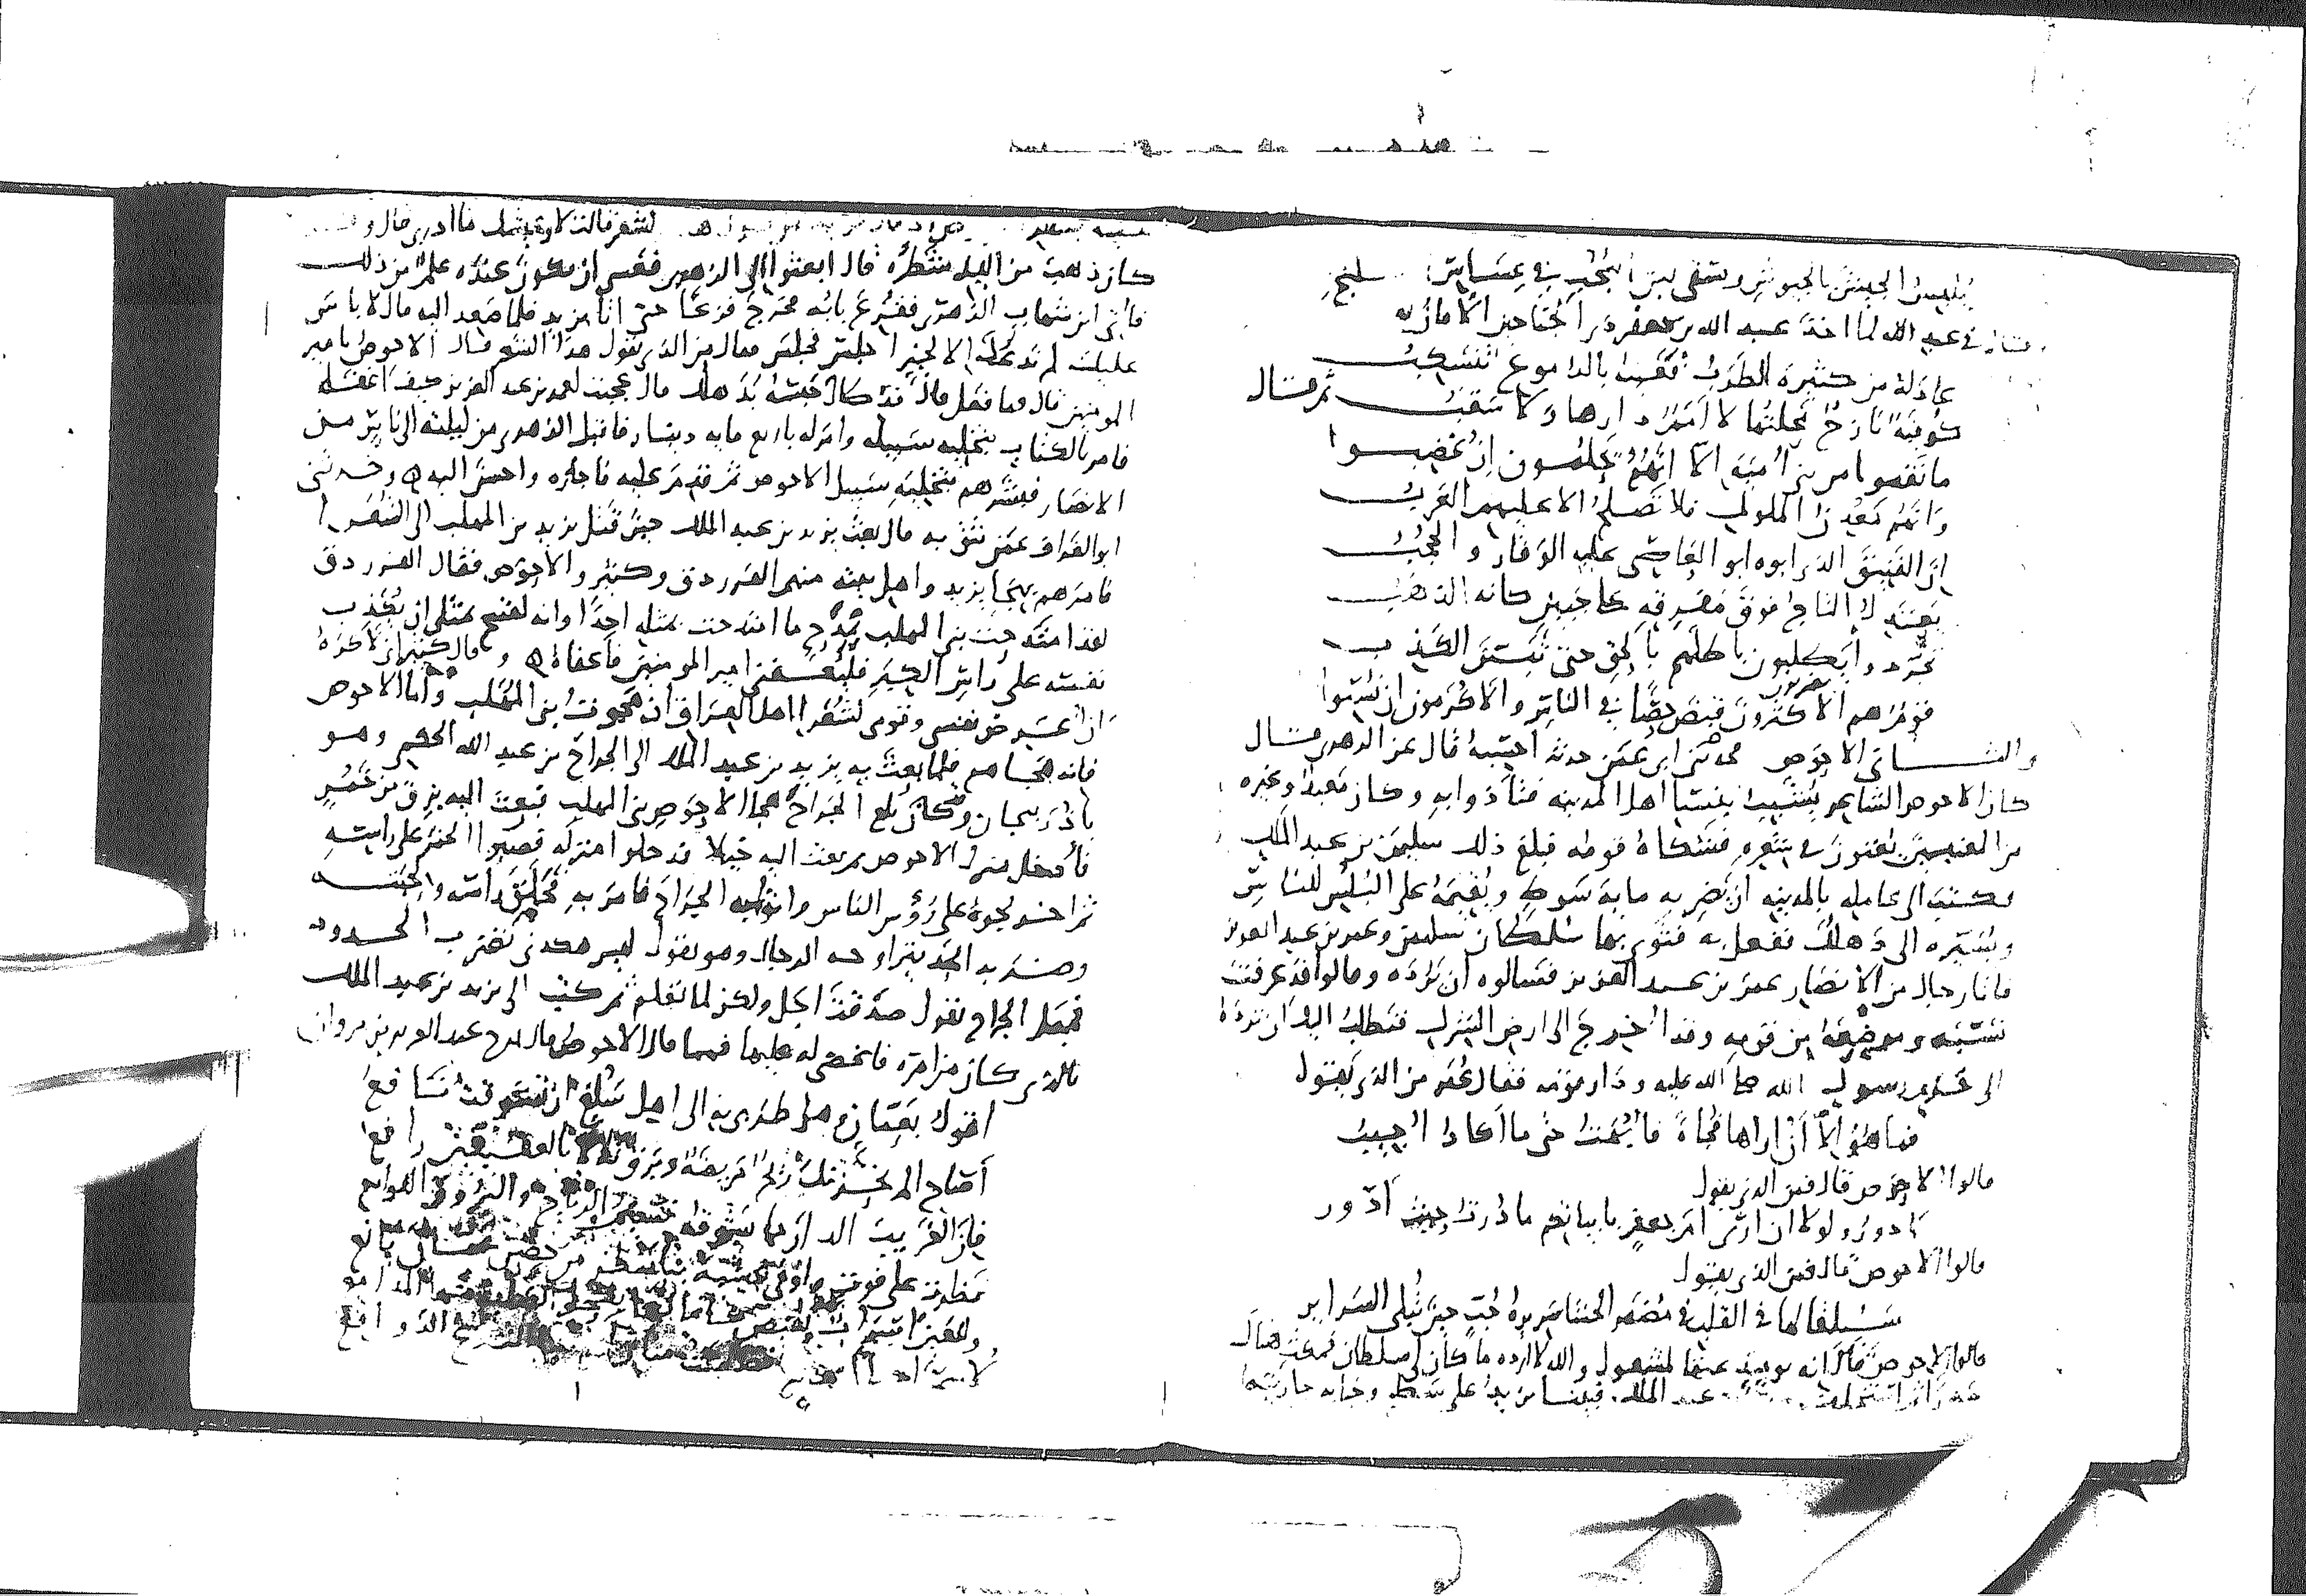 يلبس الجيش بالجيوش ويسقي لبن البخت في عساس الخلنج
وقال في عبد الله لما اخذ عبد الله بن جعفر
عاد له من كثيرة الطرب فعينه بالدموع تنسكب
كوفية نازح محلتها لا امم دارها ولا سقب ثم قال
ما نقموا من بني امية الا انهم يحلمون ان غضبوا
وانهم معدن الملوك فلا تصلح الا عليهم العرب
ان الفنيق الذي ابوه ابو العاصي عليه الوقار والحجب
يعتدل التاج فوق مفرقه على جبين كانه الذهب
تجردوا يضربون باطلهم بالحق حتى تبين الكذب
قوم هم الاكثرون قبض حصا في الناس والاكرمون ان نسبوا
والثاني الاحوص حدثني ابي عمن حدثه احسبه قال عن الزهري قال
كان الاحوص الشاعر يشبب بنساء اهل المدينه فتأذوا به وكان معبد وغيره
من المغنيين يغنون في شعره فشكاه قومه فبلغ ذلك سليمن بن عبد الملك
فكتب الى عامله بالمدينه ان يضربه مايه سوط ويقيمه على البلس للناس
ويسيره الى دهلك ففعل به فثوى بها سلطان سليمن وعمر بن عبد العزيز
فاتا رجال من الانصار عمر بن عبد العزيز فسالوه ان يرده وقالوا قد عرفت
نسبه وموضعه من قومه وقد اخرج الى ارض الشرك فنطلب اليك ان ترده
الى حرم رسول الله صلى الله عليه ودار قومه فقال عمر من الذي يقول
فما هو الا ان اراها فجاة فابهت حتى ما اكاد اجيب
قالوا الاحوص قال فمن الذي يقول
ادور ولولا ان ارى ام جعفر بابياتكم ما درت حيث ادور
قالوا الاحوص قال فمن الذي يقول
سيلقا لها في القلب في مضمر الحشا سريرة حب حين تبلى السراير
قالوا الاحوص قال انه يوميذ عنها لمشغول والله لا ارده ما كان لي سلطان فمكث هناك
عبد الملك فبينا يزيد على سطح وجاريته
لشعر قالت لا وعيشك ما ادري قال وقد
كان ذهب من الليل شطره قال ابعثوا الى الزهري فعسى ان يكون عنده علم من ذلك
فاتي ابن شهاب الزهري فقرع بابه فخرج فزعا حتى اتا يزيد فلما صعد اليه قال لا باس
عليك لم ندعك الا لخير اجلس فجلس فقال من الذي يقول هذا الشعر قال الاحوص يا امير
المومنين قال وما فعل قال قد طال حبسه بدهلك قال عجبت لعمر بن عبد العزيز كيف اغفله
فامر بالكتاب بتخليه سبيله وامر له باربع مايه دينار فاقبل الزهري من ليلته الى ناس من
الانصار فبشرهم بتخليه سبيل الاحوص ثم قدم عليه فاجازه واحسن اليه وحدثني
ابو الغراف عمن يثق به قال بعث يزيد بن عبد الملك حين قتل يزيد بن المهلب الى الشعرا
فامرهم بهجا يزيد واهل بيته منهم الفرزدق وكثير والاحوص فقال الفرزدق
لقد امتدحت بني المهلب بمدح ما امتدحت بمثله احدا وانه لقبيح بمثلي ان يكذب
نفسه على راس الكبر فليعفني امير المومنين فاعفاه وقال كثير اني لاكره
ان اعرض نفسي وقومي لشعرا اهل العراق ان هجوت بني المهلب واما الاحوص
فانه هجاهم فلما بعث به يزيد بن عبد الملك الى الجراح بن عبد الله الحكمي وهو
باذربيجان وكان بلغ الجراح هجا الاحوص بني المهلب فبعث اليه بزق من خمر
فأدخل منزل الاحوص ثم بعث اليه خيلا فدخلوا منزله فصبوا الخمر على راسه
ثم اخرجوه على رؤس الناس واتوا به الجراح فامر به فحلق راسه ولحيته
وضربه الحد بين اوجه الرجال وهو يقول ليس هكذى تضرب الحدود
فجعل الجراح يقول صدقت اجل ولكن لما تعلم ثم كتب الى يزيد بن عبد الملك
بالذي كان من امره فاغضى له عليها ومما قال الاحوص قال يمدح عبد العزيز بن مروان
اقول بعمان وهل طربي به الى اهل سلع ان تشوقت نافع
اصاح الم يحزنك ريح مريضة وبرق تلالا بالعقيقين رافع
فان الغريب الدار مما يشوقه نسيم الرياح والبروق اللوامع
نظرت على فوت واوفى عشية بنا منظر من حصن عمان يافع